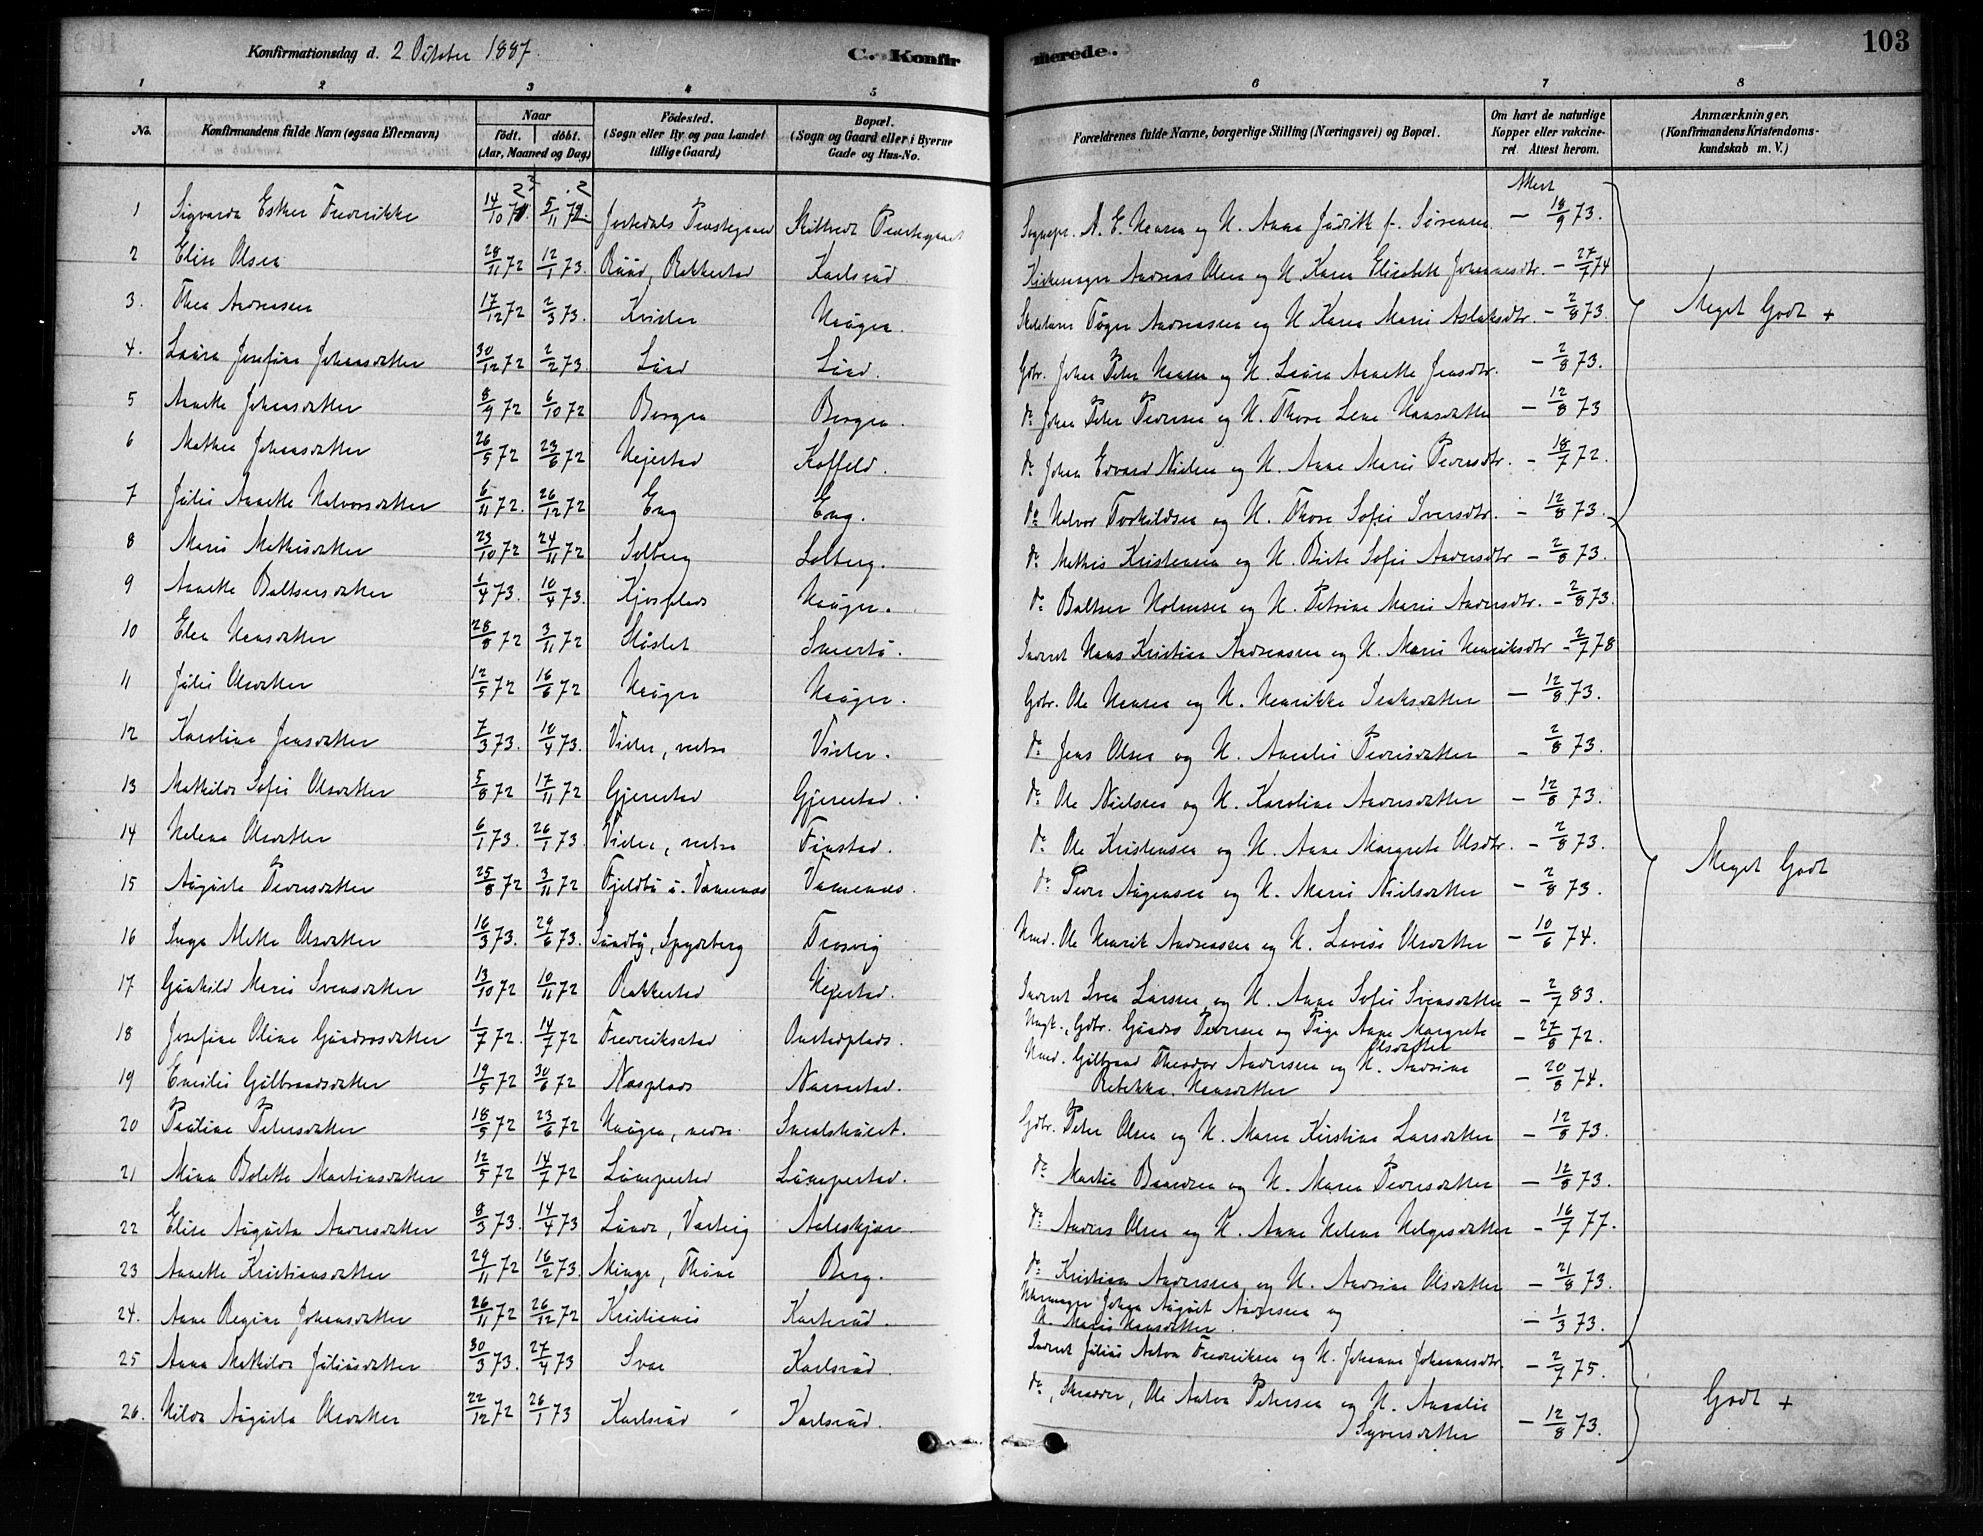 Konfirmationsdag d. 2 October 1887.
C. Konfirmerede.
103
1 2 3 4 5 6 7 8
No.
Konfirmandens fulde Navn (ogsaa Efternavn)
Naar
födt. döbt.
(Aar, Maaned og Dag)
Födested.
(Sogn eller By og paa Landet tillige Gaard)
Bopæl.
(Sogn og Gaard eller i Byerne Gade og Hus-No.
Forældrenes fulde Navne, borgerlige Stilling (Næringsvei) og Bopæl.
Om havt de naturlige Kopper eller vakcineret. Attest herom.
Anmærkninger.
(Konfirmandens Kristendomskundskab m. V.)
Attest
1 Sigvarda Esther Fredrikke 14/10 72 5/11 72 Jostedals Præstegaard Præstegaard Sognepr. A. E. Hansen og H. Anna Judith f. Sörensen – 18/9 73.
2 Elise Olsen 28/11 72 12/1 73. Rakkestad Karlsrud Kirkesanger Andreas Olsen og H. Karen Elisabeth Johannesdtr. – 27/7 74
3. Thea Andreasen 17/12 72 2/3 73. Haugen. Andreasen og H. Karen Marie Aslaksdtr. – 2/8 73
4. Laura Josefine Johansdatter 30/12 72 2/2 73. Lund Lund. Gbr. Johan Peter Hansen og H. Laura Annette Jensdtr. – 2/8 73.
5 Annette Johansdatter 8/9 72 6/10 72 Borgen Borgen. do Johan Peter Pedersen og H. Thore Lene Hansdatter – 12/8 73
6 Mathea Johansdatter 26/5 72 23/6 72 Hejestad Koffeld. do Johan Edvard Nielsen og H. Anne Marie Pedersdtr. – 18/7 72.
7 Julie Annette Halvorsdatter 6/11 72. 26/12 72 Eng Eng. do Halvor Torkildsen og H. Thore Sofie Iversdtr. – 12/8 73.
8 Marie Mathisdatter 23/10 72 24/11 72 Solberg Solberg. do Mathis Kristensen og H. Birte Sofie Andersdtr – 2/8 73.
9 Annette Baltsersdatter 1/4 73. 10/4 73. Haugen. do Baltser Holmsen og H. Petrine Marie Andersdtr. – 2/8 73.
10 Elen Hansdatter 28/8 72 3/11 72 Inderst Hans Kristian Andreasen og H. Marie Henriksdtr – 2/7 78
11 Julie Olsdatter 12/5 72 16/6 72 Haugen Haugen. Gbr. Ole Hansen og H. Henrikke Isaksdatter – 12/8 73.
12 Karoline Jensdatter 7/3 73. 10/4 73. Visler, nedre Visler. do Jens Olsen og H. Amalie Pedersdatter – 2/8 73.
13 Mathilde Sofie Olsdatter 5/8 72 17/11 72 Gjerestad Gjerestad. do Ole Nielsen og H. Karoline Andersdatter – 12/8 73.
14 Helene Olsdatter 6/1 73. 26/1 73. Visler, nedre Finstad. do Ole Kristensen og H. Anne Margrete Olsdtr. – 2/8 73.
15 Augusta Pedersdatter 25/8 72 3/11 72 Fjeldby u. Vamnæs Vamnæs. do Peder Augensen og H. Marie Nielsdatter – 2/8 73.
16 Inga Aletta Olsdatter 16/3 73. 29/6 73. Sundby, Spydeberg Trosvig Hmd. Ole Henrik Andreasen og H. Lovise Olsdatter – 10/6 74.
17 Gunhild Marie Svensdatter 13/10 72 10/11 72 Rakkestad Hejestad. Inderst Sven Larsen og H. Anne Sofie Svensdatter – 2/7 83.
18 Josefine Oline Gundrosdatter 1/7 72. 14/7 72 Fredrikstad Ungk., Gbr. Gundro Pedersen og Pige Anne Margrete
Olsdatter – 27/8 72.
19 Emilie Gulbrandsdatter 19/5 72 30/6 72 Næsplads Navestad. Hmd. Gulbrand Theodor Andersen og H. Andrine
Rebekka Hansdatter – 20/8 74.
20 Pauline Petersdatter 18/5 72 23/6 72 Haugen, nedre Gbr. Peter Olsen og H. Maren Kirstine Larsdatter – 12/8 73.
21 Mina Bolette Martinsdatter 12/5 72 14/7 72 Lumpestad Lumpestad. do Martin Baardsen og H. Maren Pedersdatter – 12/8 73.
22 Elise Augusta Andersdatter 8/3 73. 14/4 73 Lunde, Varteig Aaleskjær. do Anders Olsen og H. Anne Helene Helgesdatter – 16/7 77.
23 Annette Kristiansdatter 29/11 72 16/2 73. Minge, Thune Berg. do Kristian Andersen og H. Andrine Olsdatter – 21/8 73.
24. Anne Regine Johansdatter 26/11 72 26/12 72 Kristiania Karlsrud. Johan August Andersen og
H. Marie Hansdatter – 1/3 73.
25 Anna Mathilde Juliusdatter 30/3 73. 27/4 73 Svae Karlsrud. Inderst Julius Anton Fredriksen og H. Johanne Johannesdtr. – 2/7 75.
26. Hilda Augusta Olsdatter 22/12 72 26/1 73 Karlsrud Karlsrud. do, Skrædder, Ole Anton Petersen og H. Amalie
Syversdatter – 12/8 73.
Meget Godt +
Meget Godt
Godt +